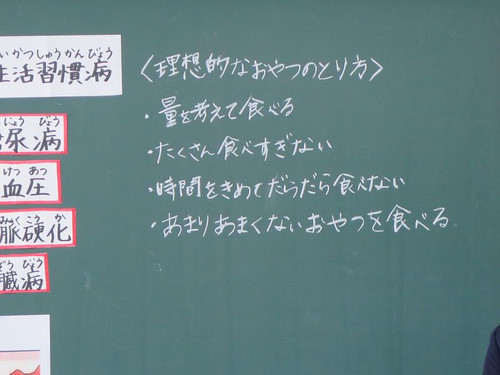 いかつしゅうかんびょう
生活習慣病
にょう びょう
尿病
けつ あつ
血圧
みゃく こう か
脈硬化
ぞう びょう
臓病
〈理想的なおやつのとり方〉
・量を考えて食べる
・たくさん食べすぎない
・時間をきめてだらだら食べない
・あまりあまくないおやつを食べる